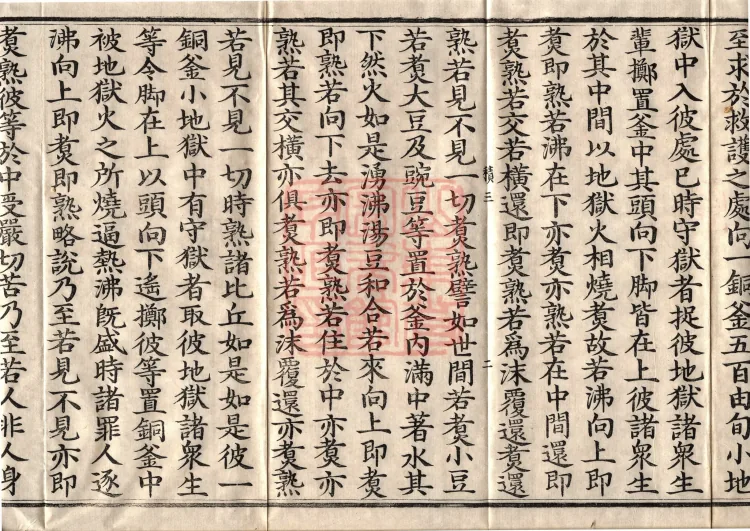 至求於救護之處向一銅釜五百由旬小地
獄中入彼處已時守獄者捉彼地獄諸衆生
輩擲置釜中其頭向下脚皆在上彼諸衆生
於其中間以地獄火相燒煑故若沸向上即
煑即熟若沸在下亦煑亦熟若在中間還即
煑熟若交若橫還即煑熟若爲沫覆還煑還
熟若見不見一切煑熟譬如世間若煑小豆
若煑大豆及豌豆等置於釜內滿中著水其
下然火如是湧沸湯豆和合若來向上即煑
即熟若向下去亦即煑熟若住於中亦煑亦
熟若其交橫亦俱煑熟若爲沫覆還亦煑熟
若見不見一切時熟諸比丘如是如是彼一
銅釜小地獄中有守獄者取彼地獄諸衆生
等令脚在上以頭向下遙擲彼等置銅釜中
被地獄火之所燒逼熱沸旣盛時諸罪人逐
沸向上即煑即熟略說乃至若見不見亦即
煑熟彼等於中受嚴切苦乃至若人非人身